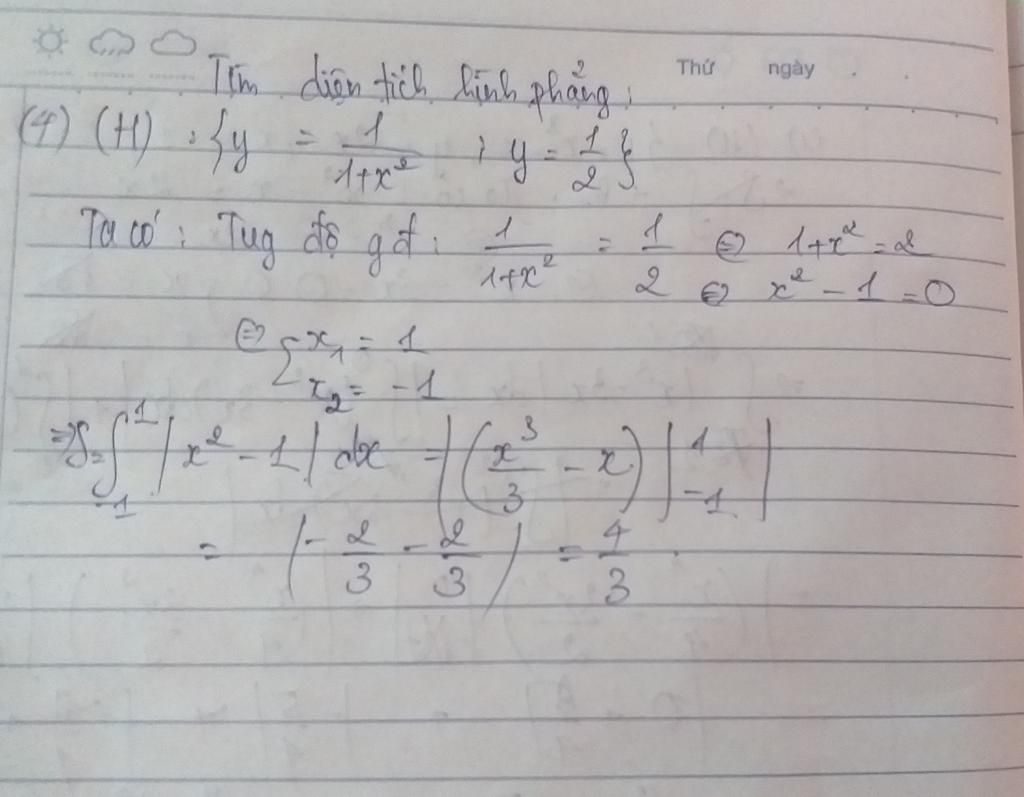 Thứ ngày . .
Tìm diện tích hình phẳng:
(4) (H) : {y = 1/(1+x²) ; y = 1/2}
Ta có : Tug độ gđ : 1/(1+x²) = 1/2 ⇔ 1+x² = 2
⇔ x² - 1 = 0
⇔ { x₁ = 1
x₂ = -1
⇒ S = ∫₋₁¹ |x² - 1| dx = |(x³/3 - x) |₋₁¹|
= |-2/3 - 2/3| = 4/3 .